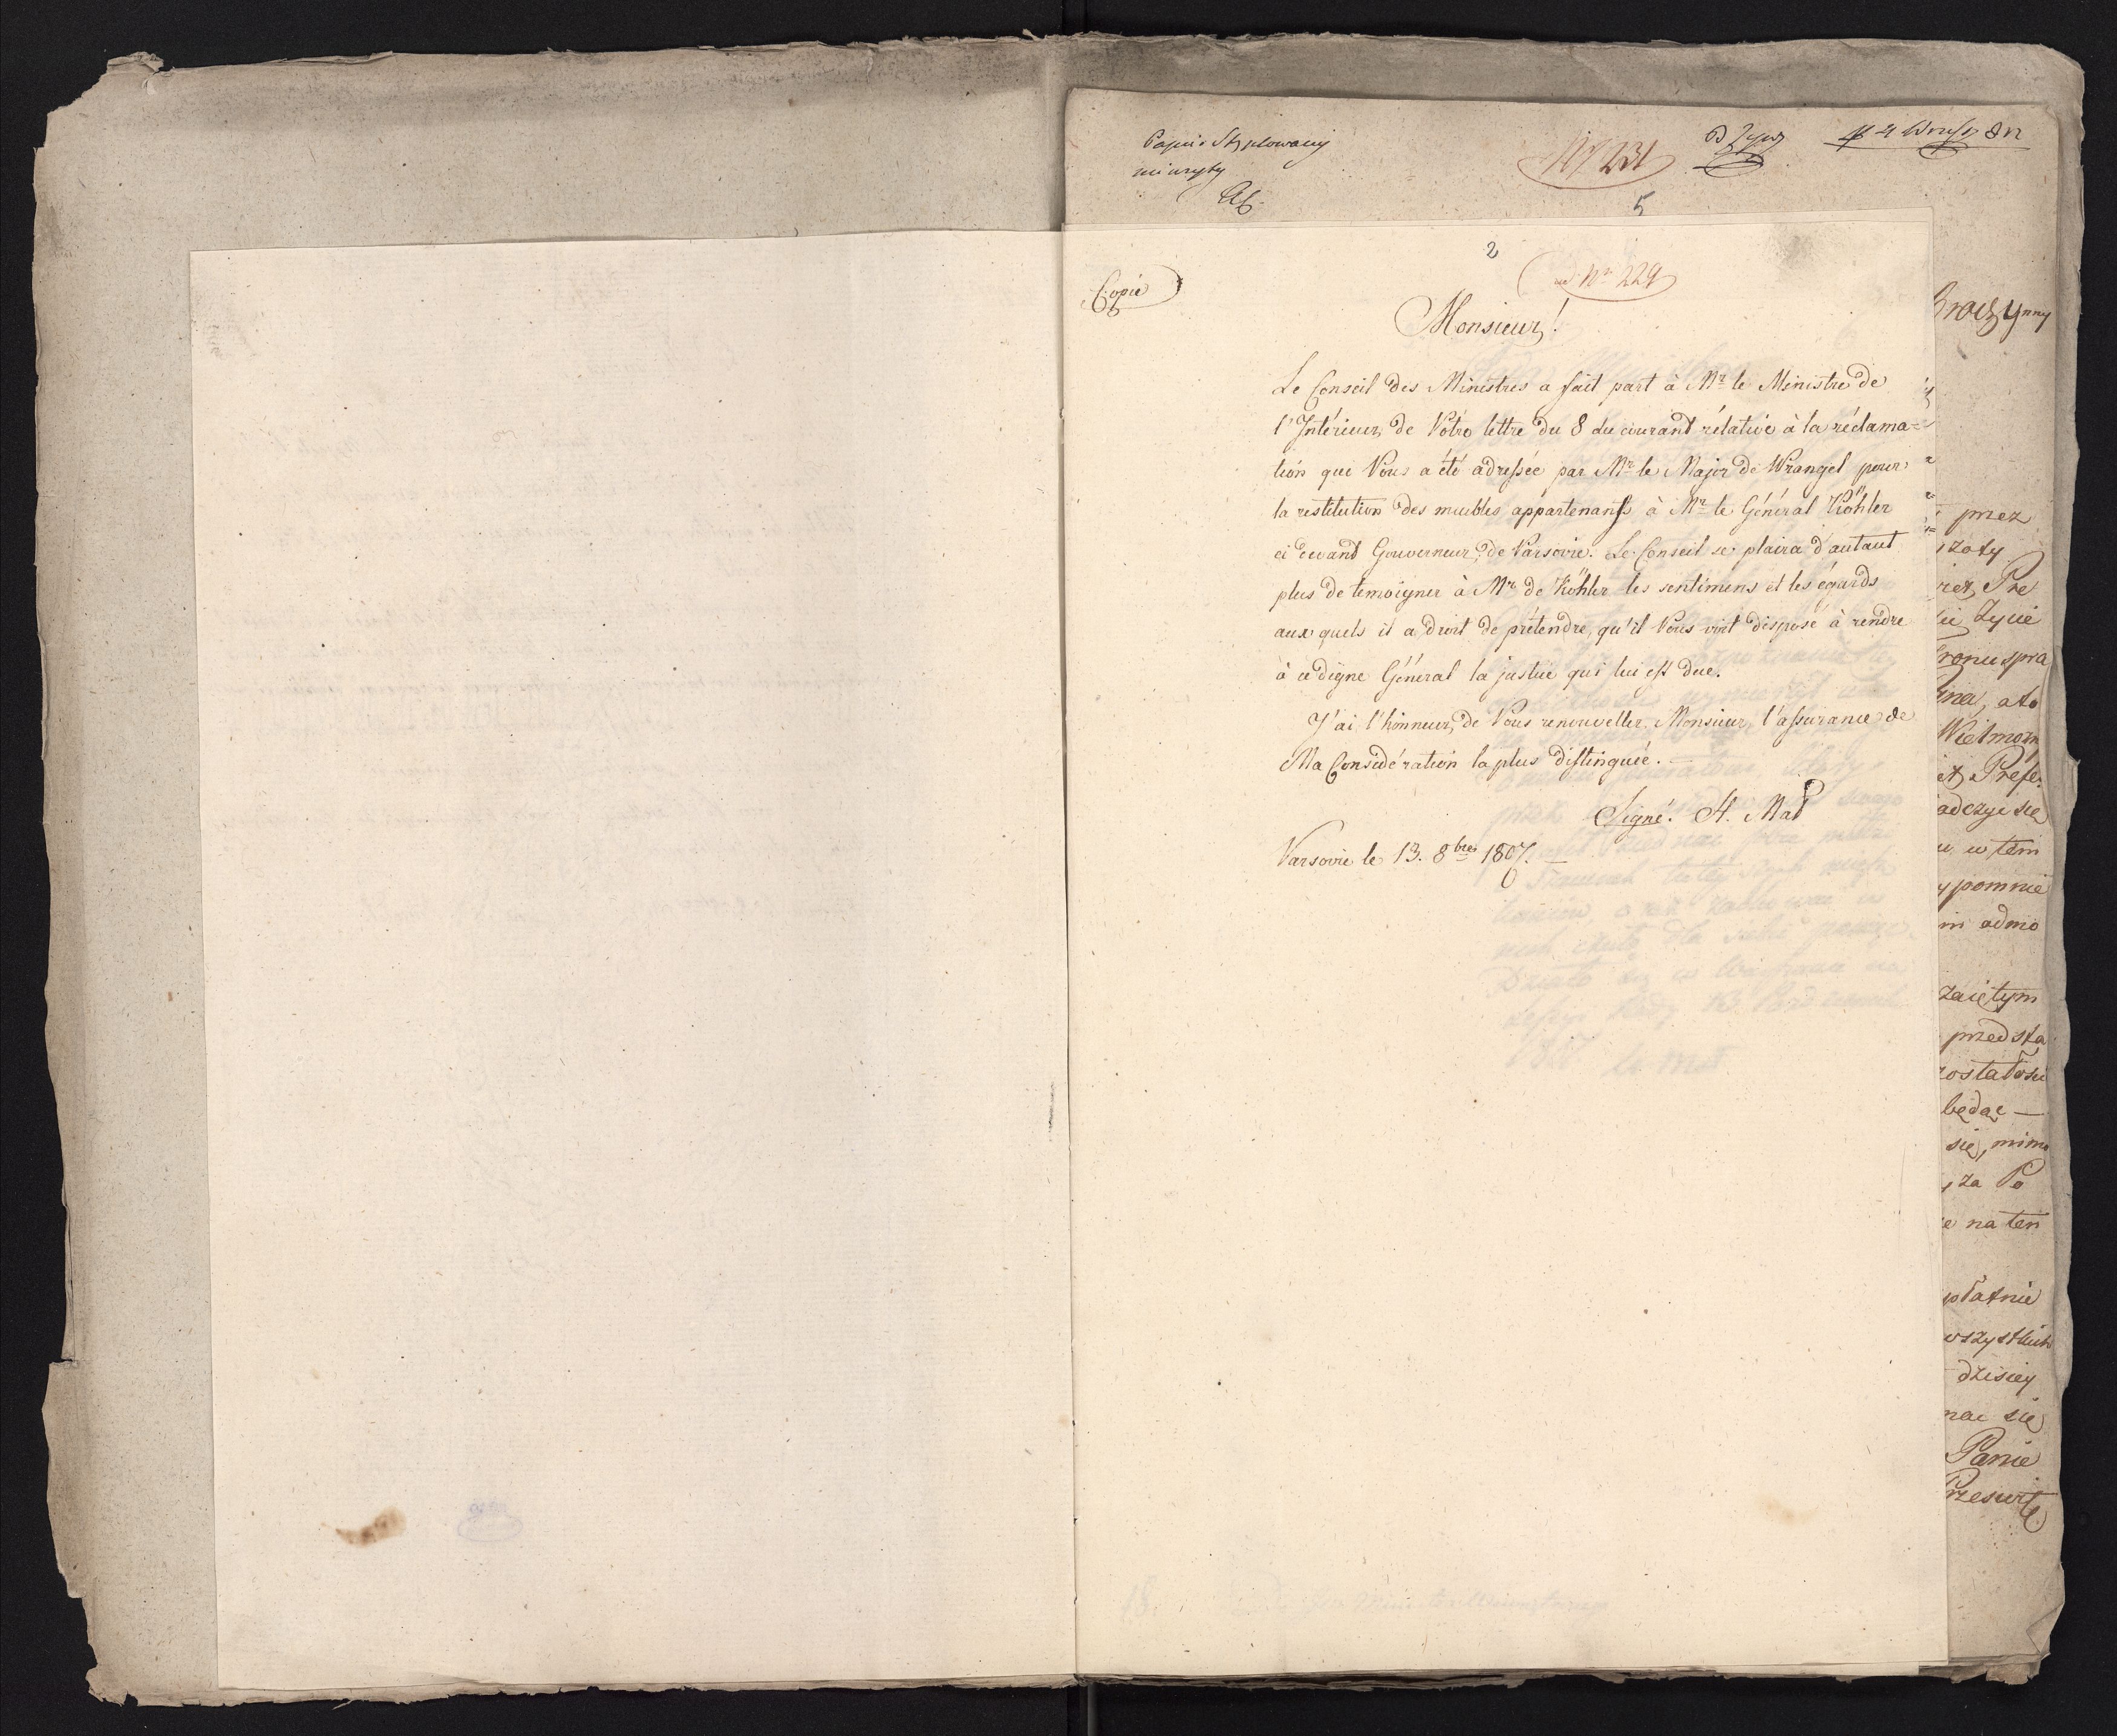 Papier Stęplowany
nie użyty
N 231
5
2
ad Nr 229
Copie
Monsieur!
Le Conseil des Ministres a fait part à Mr le Ministre de
l'Intérieur, de Vôtre lettre du 8 du courant rélative à la réclama=
tion que Vous a été adressée par Mr le Major de Wrangel pour
la restitution des meubles appartenants à Mr le Général Köhler
ci devant Gouverneur de Varsovie. Le Conseil se plaira d'autant
plus de temoigner à Mr de Köhler les sentimens et les égards
aux quels il a droit de prétendre, qu'il Vous voit disposé à rendre
à ce digne Général la justice qui lui est due.
J'ai l'honneur, de Vous renouveller Monsieur, l'assurance de
Ma Considération la plus distinguée. —
Signé. St. Mał
Varsovie le 13. 8bre 1807. —
przez
Pre
życie
spra
, ato
Wielmorz
Prefe.
adczyć się
w tem
ypomnie
admo
zaiętym
przedsta
zostałosci
będąc —
się, mimo
za Po
na ten
płatnie
wszystkich
dzisiey
się
Panie
Przeswite